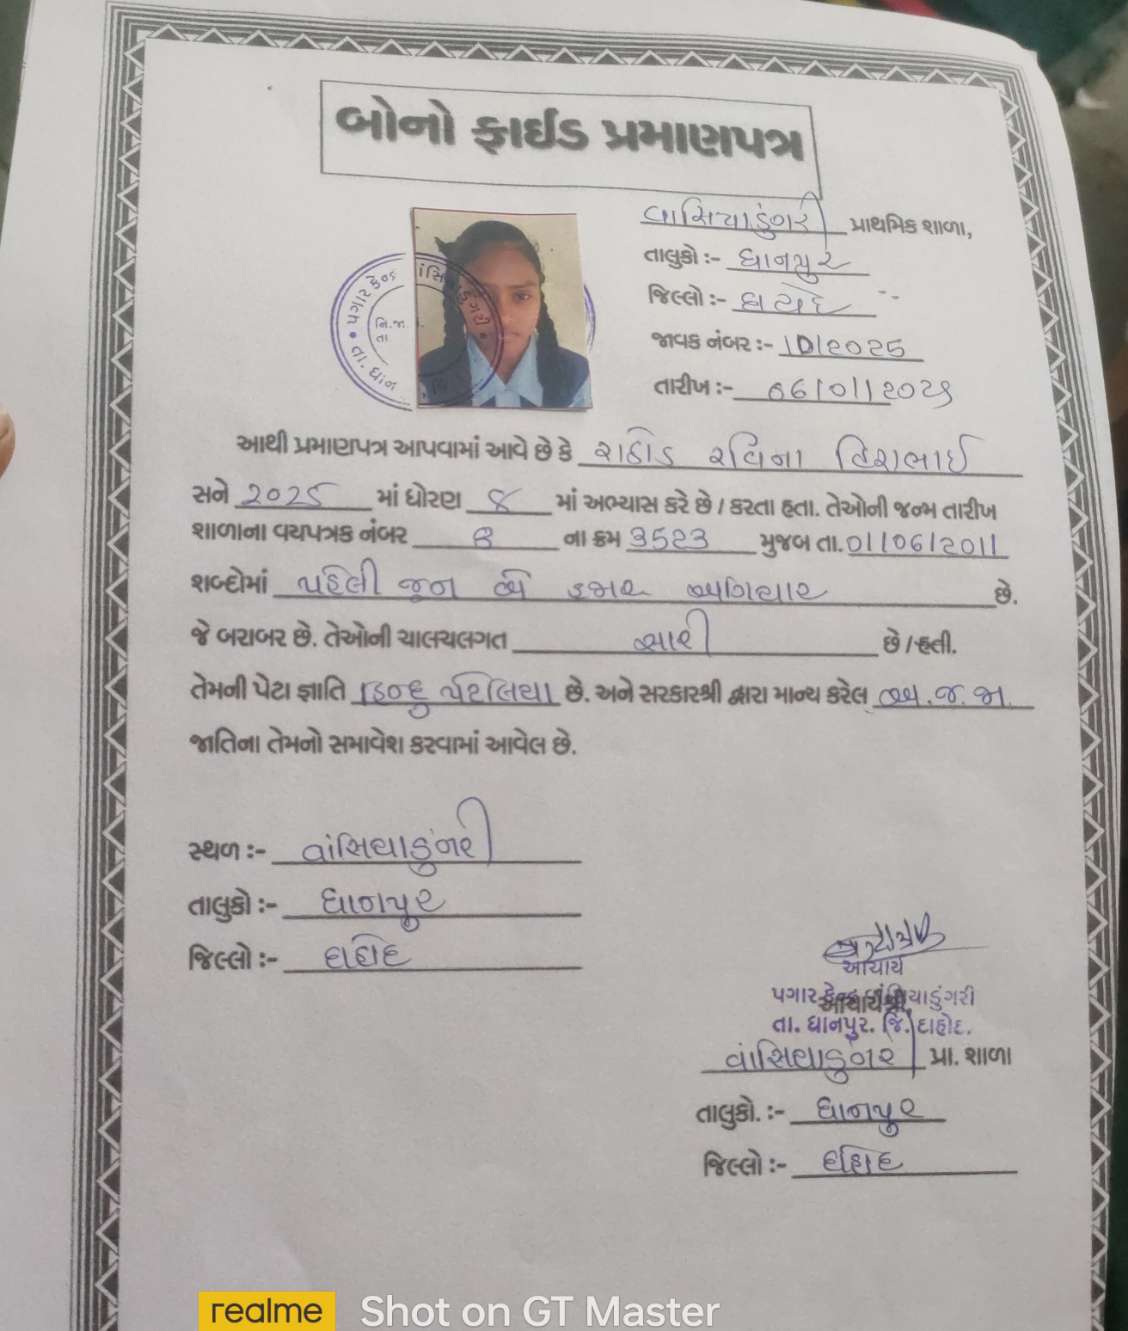 બોનો ફાઈડ પ્રમાણપત્ર
વાસિયાડુંગરી પ્રાથમિક શાળા,
તાલુકો :- ધાનપુર
જિલ્લો :- દાહોદ
જાવક નંબર :- 10/2025
તારીખ :- 06/01/2025
પગાર કેન્દ્ર
નિ.જા.
તા. ધાન
આથી પ્રમાણપત્ર આપવામાં આવે છે કે રાઠોડ રવિના
સને 2025 માં ધોરણ ૮ માં અભ્યાસ કરે છે / કરતા હતા. તેઓની જન્મ તારીખ
શાળાના વયપત્રક નંબર 8 ના ક્રમ 3523 મુજબ તા. 01/06/2011
શબ્દોમાં પહેલી જૂન બે હજાર અગિયાર છે.
જે બરાબર છે. તેઓની ચાલચલગત સારી છે / હતી.
તેમની પેટા જ્ઞાતિ હિન્દુ પટેલિયા છે. અને સરકારશ્રી દ્વારા માન્ય કરેલ અ.જ.જા.
જાતિના તેમનો સમાવેશ કરવામાં આવેલ છે.
સ્થળ :- વાંસિયાડુંગરી
તાલુકો :- ધાનપુર
જિલ્લો :- દાહોદ
આચાર્ય
પગાર કેન્દ્ર વાંસિયાડુંગરી
આચાર્યશ્રી,
તા. ધાનપુર. જિ. દાહોદ.
વાંસિયાડુંગરી પ્રા. શાળા
તાલુકો. :- ધાનપુર
જિલ્લો :- દાહોદ
realme Shot on GT Master